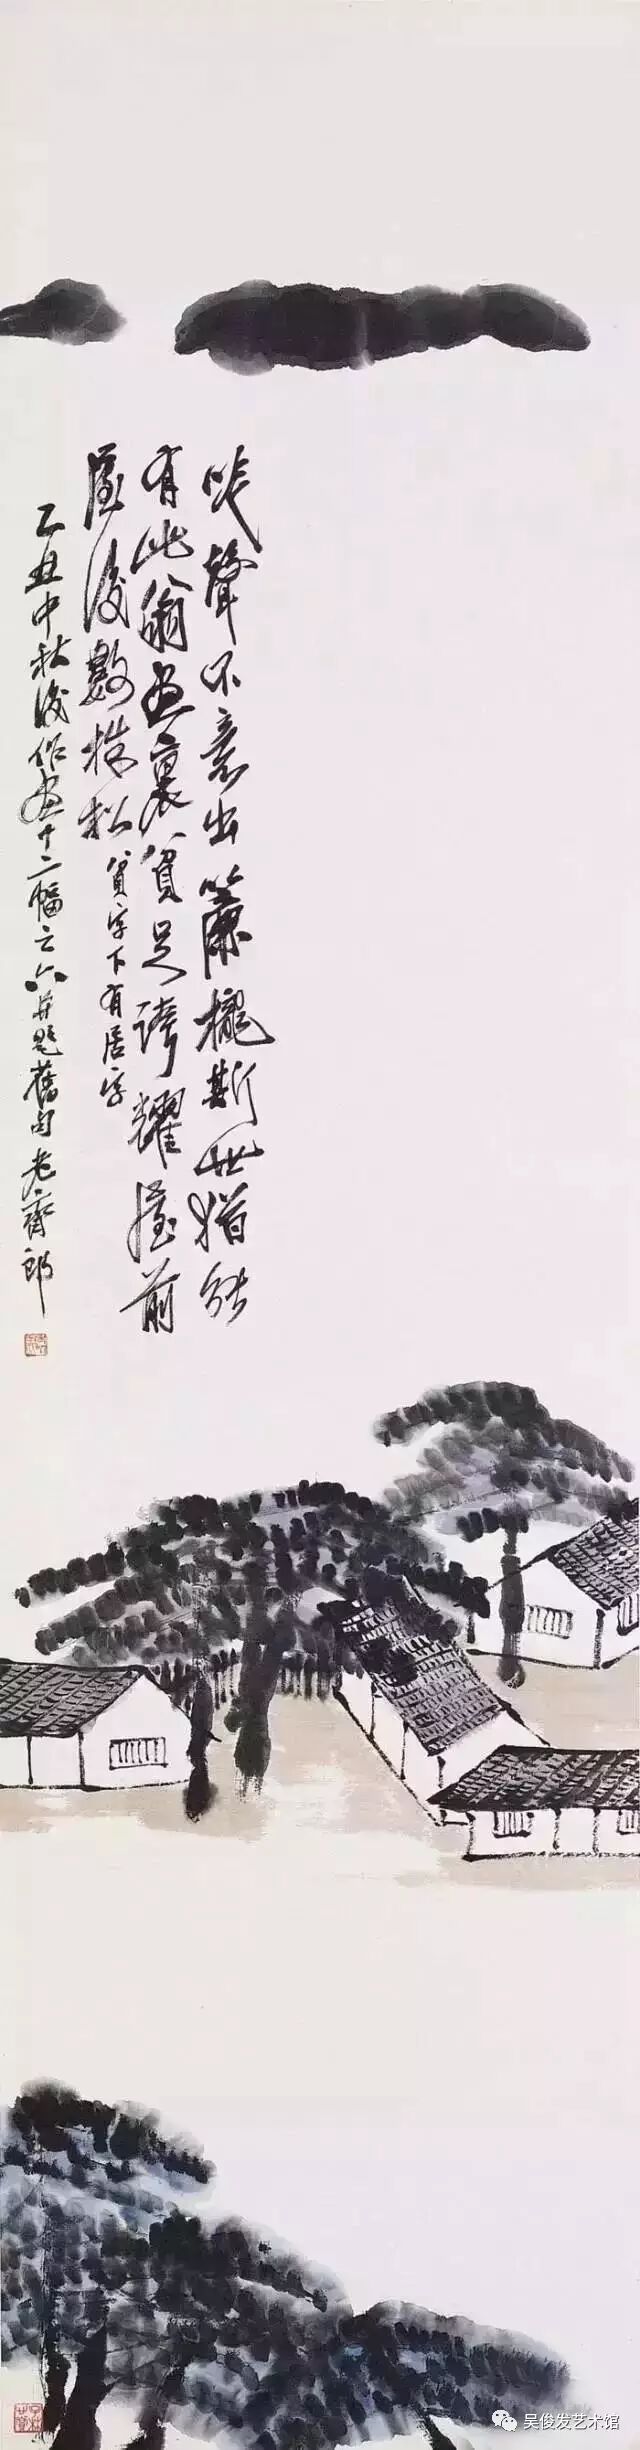 咲聲不意出簾櫳斯世猶能
有此翁畫裏貧足誇耀屋前
屋後數株松貧字下有居字
乙丑中秋後作畫十二幅之六并題舊句老齊郎
吴俊发艺术馆